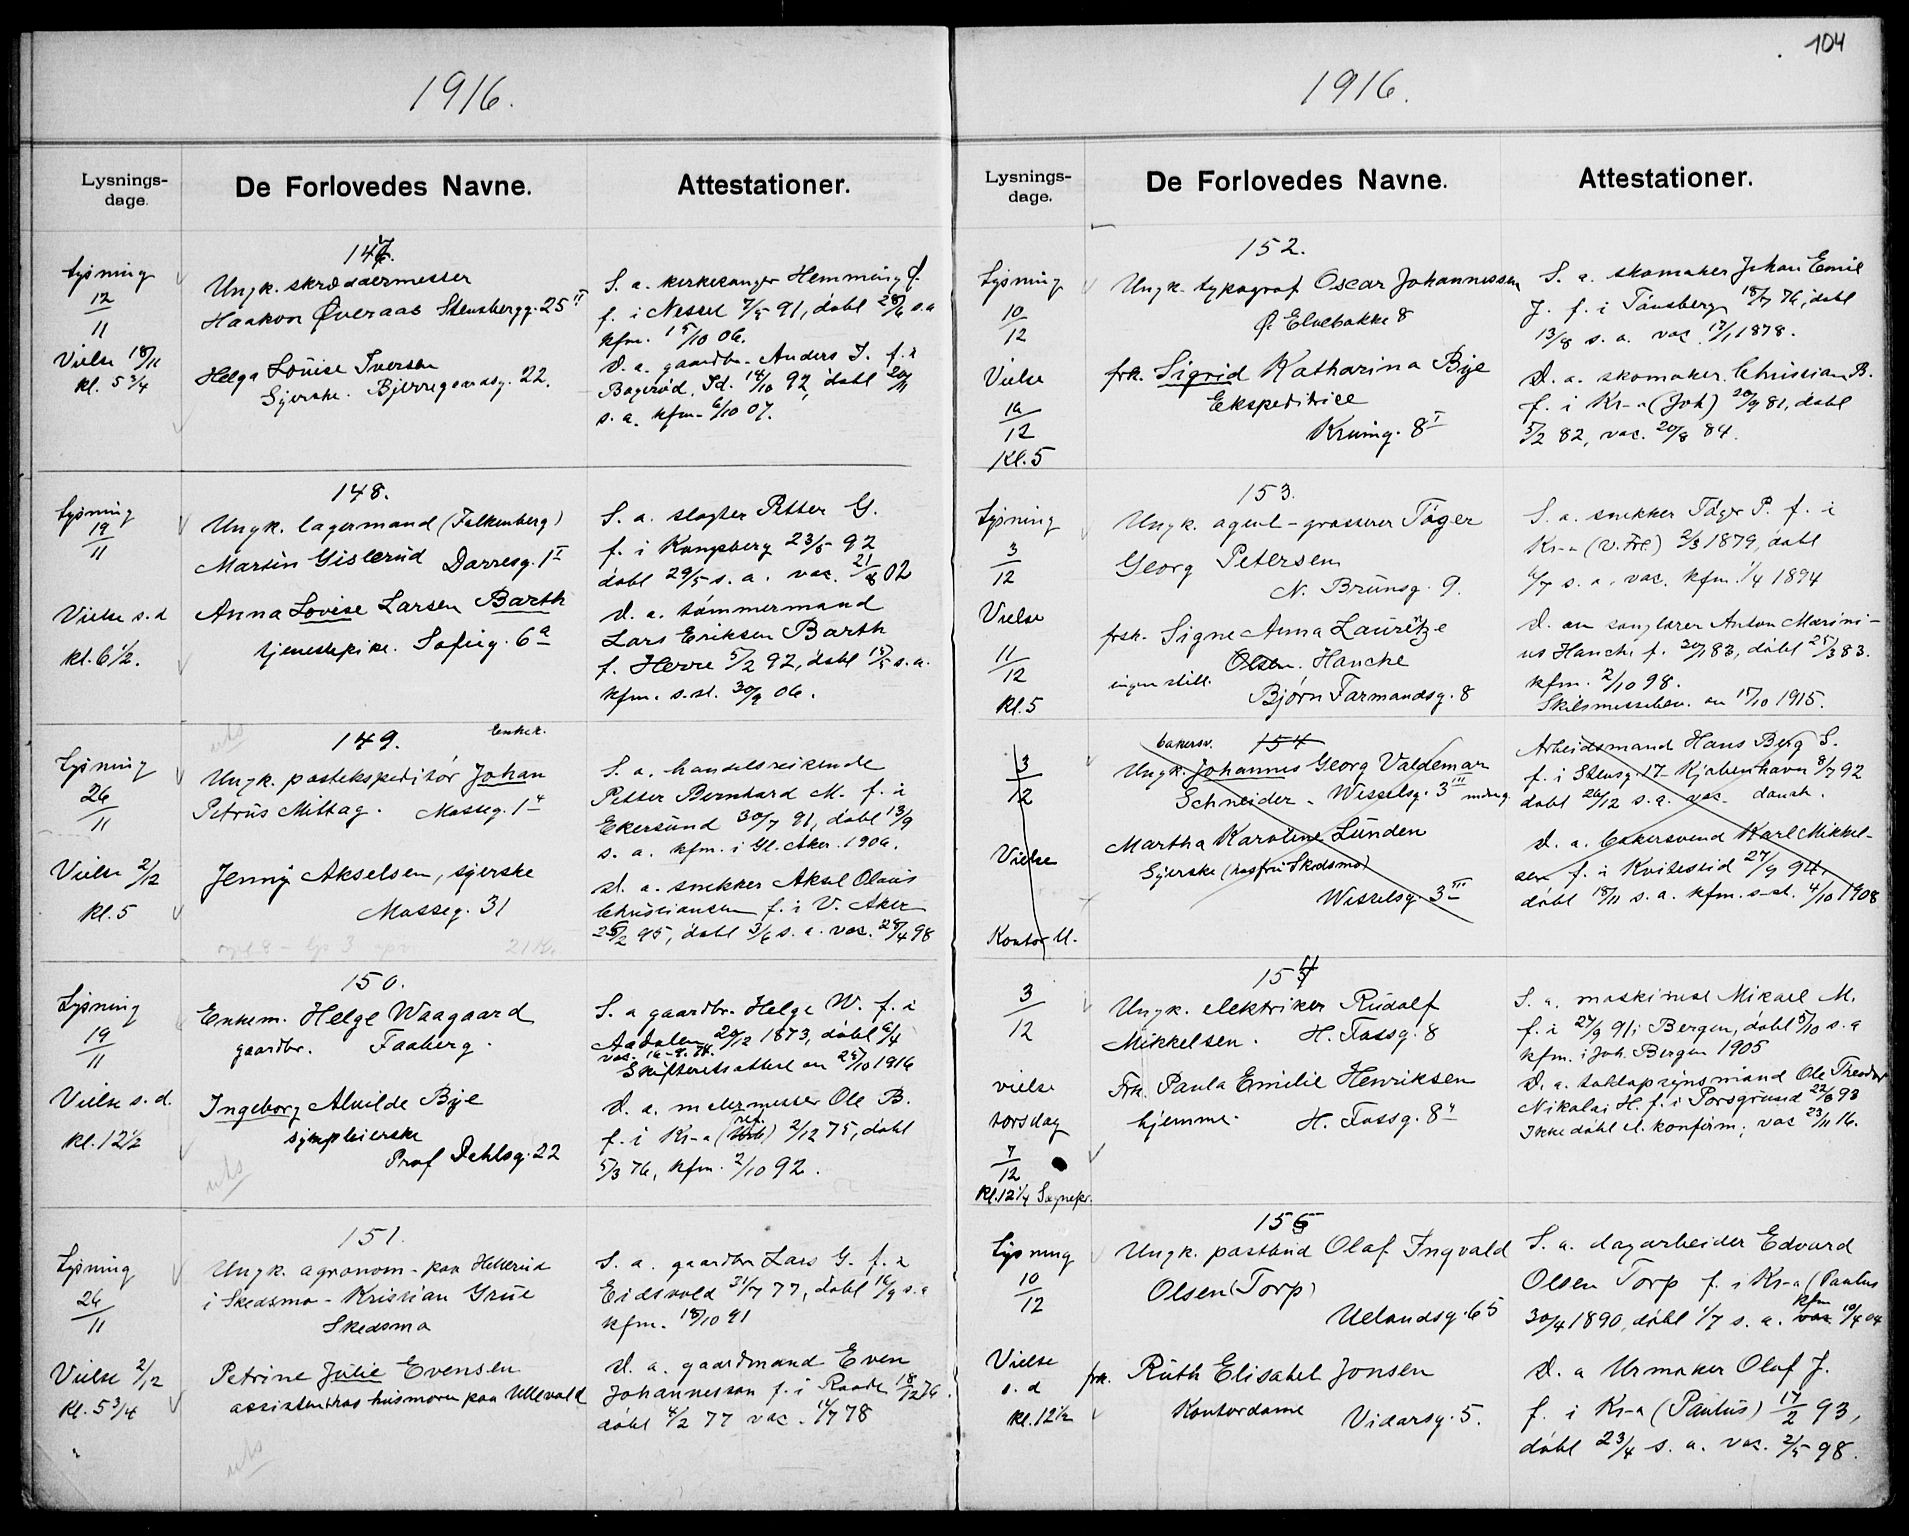 104
1916.
Lysnings-
dage.
De Forlovedes Navne.
Attestationer.
147.
Lysning
12
11
Vielse 18/11
kl. 5 3/4
Ungk. skræddermester
Haakon Øveraas Stensbergg. 25 II
Helga Louise Iversen
Syerske. Bjerregaardsg. 22.
S. a. kirkesanger Hemming Ø.
f. i Nesset 7/5 91, døbt 28/6 s.a
kfm. 15/10 06.
D. a. gaardbr. Anders I. f. i
s. a. kfm. 6/10 07.
148.
Lysning
19
11
Vielse s. d
kl. 6 1/2.
Ungk. lagermand (Falkenberg)
Martin Gislerud Darresg. 1 I
Anna Lovise Larsen Barth
tjenestepike. Sofieg. 6 a
S. a. slagter Petter G.
f. i Kongsberg 23/5 92
døbt 29/5 s. a. vac. 21/8 02
D. a. tømmermand
Lars Eriksen Barth
f. Herre 5/2 92, døbt 15/5 s. a.
kfm. s. st. 30/9 06.
149.
Lysning
26
11
Vielse 2/12
kl. 5
Ungk. postekspeditør Johan
Petrus Mittag. Mosseg. 1 4
Jenny Akselsen, syerske
Mosseg. 31
S. a. handelsreisende
Petter Bernhard M. f. i
Ekersund 30/7 91, døbt 13/9
s. a. kfm. i Gl. Aker 1906.
D. a. snekker Aksel Olaus
Christiansen f. i V. Aker
25/2 95, døbt 3/6 s. a. vac. 28/4 98
150.
Lysning
19
11
Vielse s. d.
kl. 12 1/2
Enkem. Helge Waagaard
gaardbr. Faaberg.
Ingeborg Alvilde Bye
Prof Dahlsg. 22
S. a gaardbr. Helge W. f. i
Aadalen 20/12 1873, døbt 6/4
Skifteretsattest av 25/10 1916
D. a. malermester Ole B.
f. i Kr-a 2/12 75, døbt
5/3 76, kfm. 2/10 92.
151.
Lysning
26
11
Vielse 2/12
kl. 5 3/4
Ungk. agronom - paa Hellerud
i Skedsmo - Kristian Grue
Skedsmo
Petrine Julie Evensen
assistent hos husmoren paa Ullevold
S. a. gaardbr Lars G. f. i
Eidsvold 31/7 77, døbt 16/9 s. a
kfm. 18/10 91
D. a. gaardmand Even
Johannessen f. i Raade 18/12 76.
døbt 4/2 77 vac. 14/7 78
1916.
Lysnings-
dage.
De Forlovedes Navne.
Attestationer.
152.
Lysning
10
12
Vielse
16
12
Kl. 5
Ungk. typograf Oscar Johannessen
Ø. Elvebakke 8
frk. Sigrid Katharina Bye
Ekspeditrice
Krumg. 8 I
S. a. skomaker Johan Emil
J. f. i Tønsberg 18/7 76, døbt
13/8 s. a. vac. 17/1 1878.
D. a. skomaker Christian B.
f. i Kr-a (Joh) 20/9 81, døbt
5/2 82, vac. 20/8 84.
153.
Lysning
3
12
Vielse
11
12
Kl. 5
Ungk. agent-grosserer Tøger
Georg Petersen
N. Brunsg. 9.
frsk. Signe Anna Lauritze
Olsen. Hanche
ingen still.
Bjørn Farmandsg. 8
S. a. snekker Tøger P. f. i
Kr-a (V. Frl) 2/3 1879, døbt
6/7 s. a. vac. kfm. 1/4 1894
D. av sanglærer Anton Marini-
us Hanche f. 30/1 83, døbt 25/3 83.
kfm. 2/10 98.
Skilsmissebev. av 15/10 1915.
154
3
12
Vielse
Kontor U.
bakersv.
Ungk. Johannes Georg Valdemar
Schneider. Wesselsg. 3 III
Martha Karoline Lunden
Syerske (hos fru Skedsmo)
Wesselsg. 3 III
Arbeidsmand Hans Berg S.
f. i Stensg. 17 Kjøbenhavn 8/7 92
døbt 26/12 s. a. vac. dansk.
D. a. bakersvend Karl Mikkel-
sen f. i Kviteseid 27/9 94,
døbt 18/11 s. a. kfm. s. st. 4/10 1908
154
3
12
vielse
torsdag
7
12
Kl. 12 1/4 Sognepr.
Ungk. elektriker Rudolf
Mikkelsen. H. Fossg. 8
Frk. Paula Emilie Henriksen
hjemme. H. Fossg. 8
S. a. maskinist Mikael M.
f. i 27/9 91 i Bergen, døbt 5/10 s. a
kfm. i Joh. Bergen 1905
D. a. toldopsynsmand Ole Theodor
Nikolai H. f. i Porsgrund 22/8 93
Ikke døbt el. konfirm; vac 23/11 16.
155
Lysning
10
12
Vielse
s. d
kl. 12 1/2
Ungk. postbud Olaf Ingvald
Olsen (Torp)
Uelandsg. 65
frk. Ruth Elisabet Jonsen
Kontordame Vidarsg. 5.
S. a. dagarbeider Edvard
Olsen Torp f. i Kr-a (Paulus
30/4 1890, døbt 1/7 s. a. kfm 10/4 04
D. a Urmaker Olaf J.
f. i Kr-a (Paulus) 17/2 93,
døbt 23/4 s. a. vac. 2/5 98.